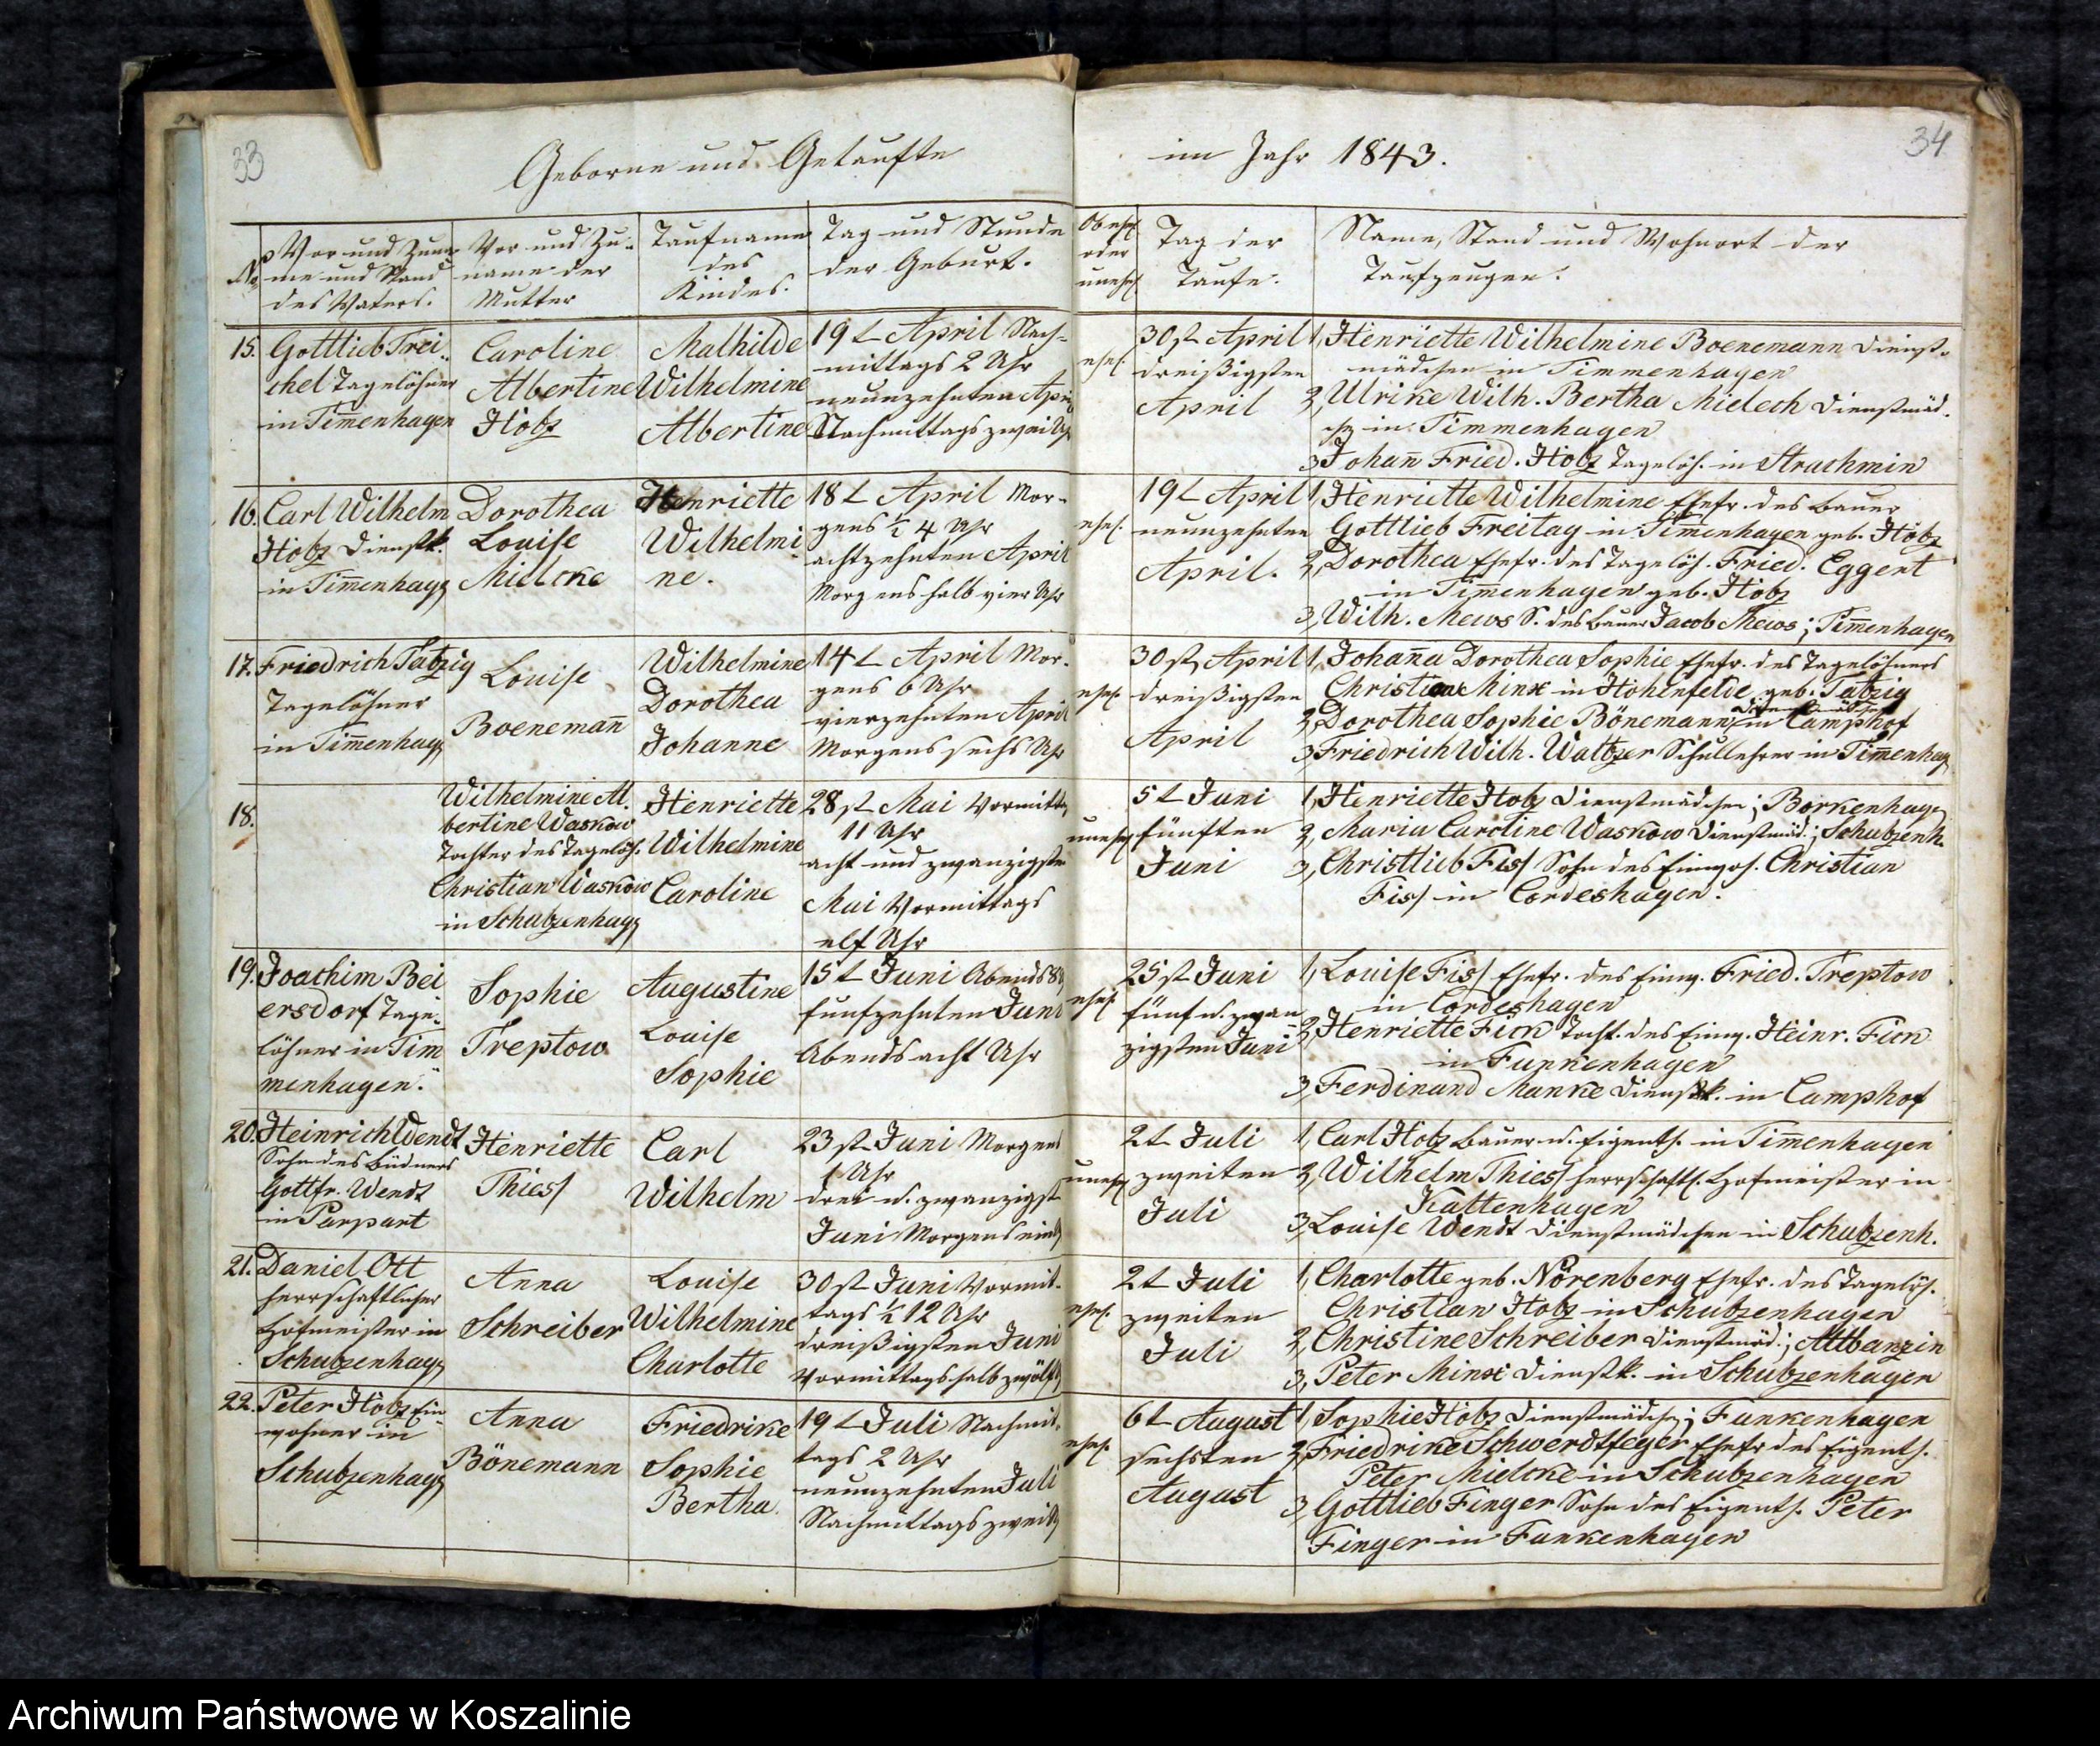 33
Geborne und Getaufte
im Jahr 1843.
34
No
Vor und Zuna-
me und Stand
des Vaters.
Vor und Zu-
name der
Mutter
Taufname
des
Kindes.
Tag und Stunde
der Geburt.
Ob ehel.
oder
unehel.
Tag der
Taufe.
Name, Stand und Wohnort der
Taufzeugen.
15.
Gottlieb Trei-
chel Tagelöhner
in Tim̄enhagen
Caroline
Albertine
Holtz
Mathilde
Wilhelmine
Albertine
19t April Nach-
mittags 2 Uhr
neunzehnten April
Nachmittags zwei Uhr
ehel.
30st April
dreißigsten
April
1, Henriette Wilhelmine Boenemann Dienst-
mädchen in Timmenhagen
2, Ulrike Wilh. Bertha Mielech Dienstmäd-
ch. in Timmenhagen
3, Johan̄ Fried. Holtz Tagelöh. in Strachmin
16.
Carl Wilhelm
Holtz Dienstk.
in Tim̄enhag.
Dorothea
Louise
Mielcke
Henriette
Wilhelmi
ne.
18t April Mor-
gens ½ 4 Uhr
achtzehnten April
Morgens halb vier Uhr
ehel.
19t April
neunzehnten
April.
1, Henriette Wilhelmine Ehefr. des Bauer
Gottlieb Freitag in Tim̄enhagen geb. Holtz
2, Dorothea Ehefr. des Tagelöh. Fried. Eggert
in Tim̄enhagen geb. Holtz
3, Wilh. Mews S. des Bauer Jacob Mews i. Tim̄enhagen
17.
Friedrich Tatzig
Tagelöhner
in Tim̄enhag.
Louise
Boeneman̄
Wilhelmine
Dorothea
Johanne
14t April Mor-
gens 6 Uhr
vierzehnten April
Morgens sechs Uhr
ehel.
30st April
dreißigsten
April
1, Johan̄a Dorothea Sophie Ehefr. des Tagelöhners
Christian Minx in Hohenfelde geb. Tatzig
Dienstmädchen
2, Dorothea Sophie Bönemann in Camphof
3, Friedrich Wilh. Waltzer Schullehrer in Tim̄enhag.
18.
Wilhelmine Al-
bertine Waskow
Tochter des Tagelöh.
Christian Waskow
in Schulzenhag.
Henriette
Wilhelmine
Caroline
28st Mai Vormitt.
11 Uhr
acht und zwanzigste
Mai Vormittags
elf Uhr
unehel.
5t Juni
fünften
Juni
1, Henriette Holtz Dienstmädchen i. Borkenhag.
2, Maria Caroline Waskow Dienstmäd. i. Schulzenh.
3, Christlieb Fiss Sohn des Einwoh. Christian
Fiss in Cordeshagen.
19.
Joachim Bei
ersdorf Tage-
löhner in Tim
menhagen.
Sophie
Treptow
Augustine
Louise
Sophie
15t Juni Abends 8 U.
funfzehnten Juni
Abends acht Uhr
ehel.
25st Juni
fünf u. zwan
zigsten Juni
1, Louise Fiss Ehefr. des Einw. Fried. Treptow
in Cordeshagen
2, Henriette Fick Tocht. des Einw. Heinr. Fick
in Funkenhagen
3, Ferdinand Manke Dienstk. in Camphof
20.
Heinrich Wendt
Sohn des Büdners
Gottfr. Wendt
in Parpart
Henriette
Thiess
Carl
Wilhelm
23st Juni Morgens
1 Uhr
drei u. zwanzigst
Juni Morgens ein U.
unehel.
2t Juli
zweiten
Juli
1, Carl Holtz Bauer u. Eigenth. in Tim̄enhagen
2, Wilhelm Thiess herrschaftl. Hofmeister in
Kaltenhagen
3, Louise Wendt Dienstmädchen in Schulzenh.
21.
Daniel Ott
herrschaftlicher
Hofmeister in
Schulzenhag.
Anna
Schreiber
Louise
Wilhelmine
Charlotte
30st Juni Vormit-
tags ½ 12 Uhr
dreißigsten Juni
Vormittags halb zwölf U.
ehel.
2t Juli
zweiten
Juli
1, Charlotte geb. Nörenberg Ehefr. des Tagelöh.
Christian Holtz in Schulzenhagen
2, Christine Schreiber Dienstmäd. i. Altbanzin
3, Peter Minx Dienstk. in Schulzenhagen
22.
Peter Holtz Ein-
wohner in
Schulzenhag.
Anna
Bönemann
Friedrike
Sophie
Bertha.
19t Juli Nachmit-
tags 2 Uhr
neunzehnten Juli
Nachmittags zwei U.
ehel.
6t August
sechsten
August
1, Sophie Holtz Dienstmädch. i. Funkenhagen
2, Friedrike Schwerdtfeger Ehefr des Eigenth.
Peter Mielcke in Schulzenhagen
3, Gottlieb Finger Sohn des Eigenth. Peter
Finger in Funkenhagen
Archiwum Państwowe w Koszalinie